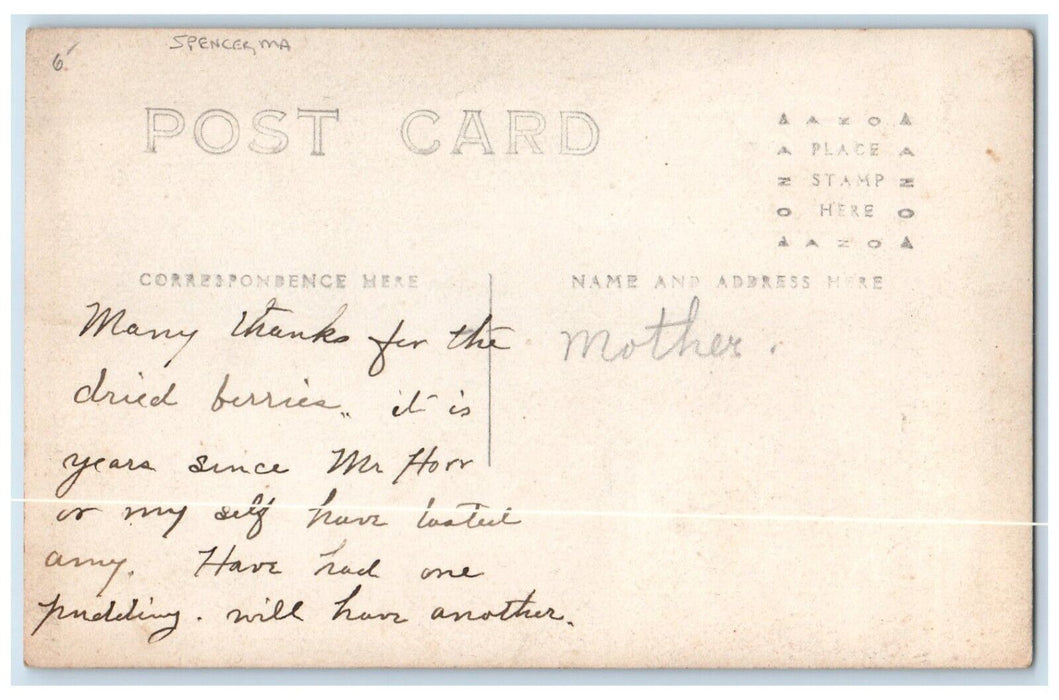 SPENCER, MA
6
POST CARD
A A Z O A
A PLACE A
Z STAMP Z
O HERE O
A A Z O A
CORRESPONDENCE HERE
NAME AND ADDRESS HERE
Many thanks for the
dried berries,, it is
years since Mr Horr
or my self have tasted
any. Have had one
pudding. will have another.
Mother.